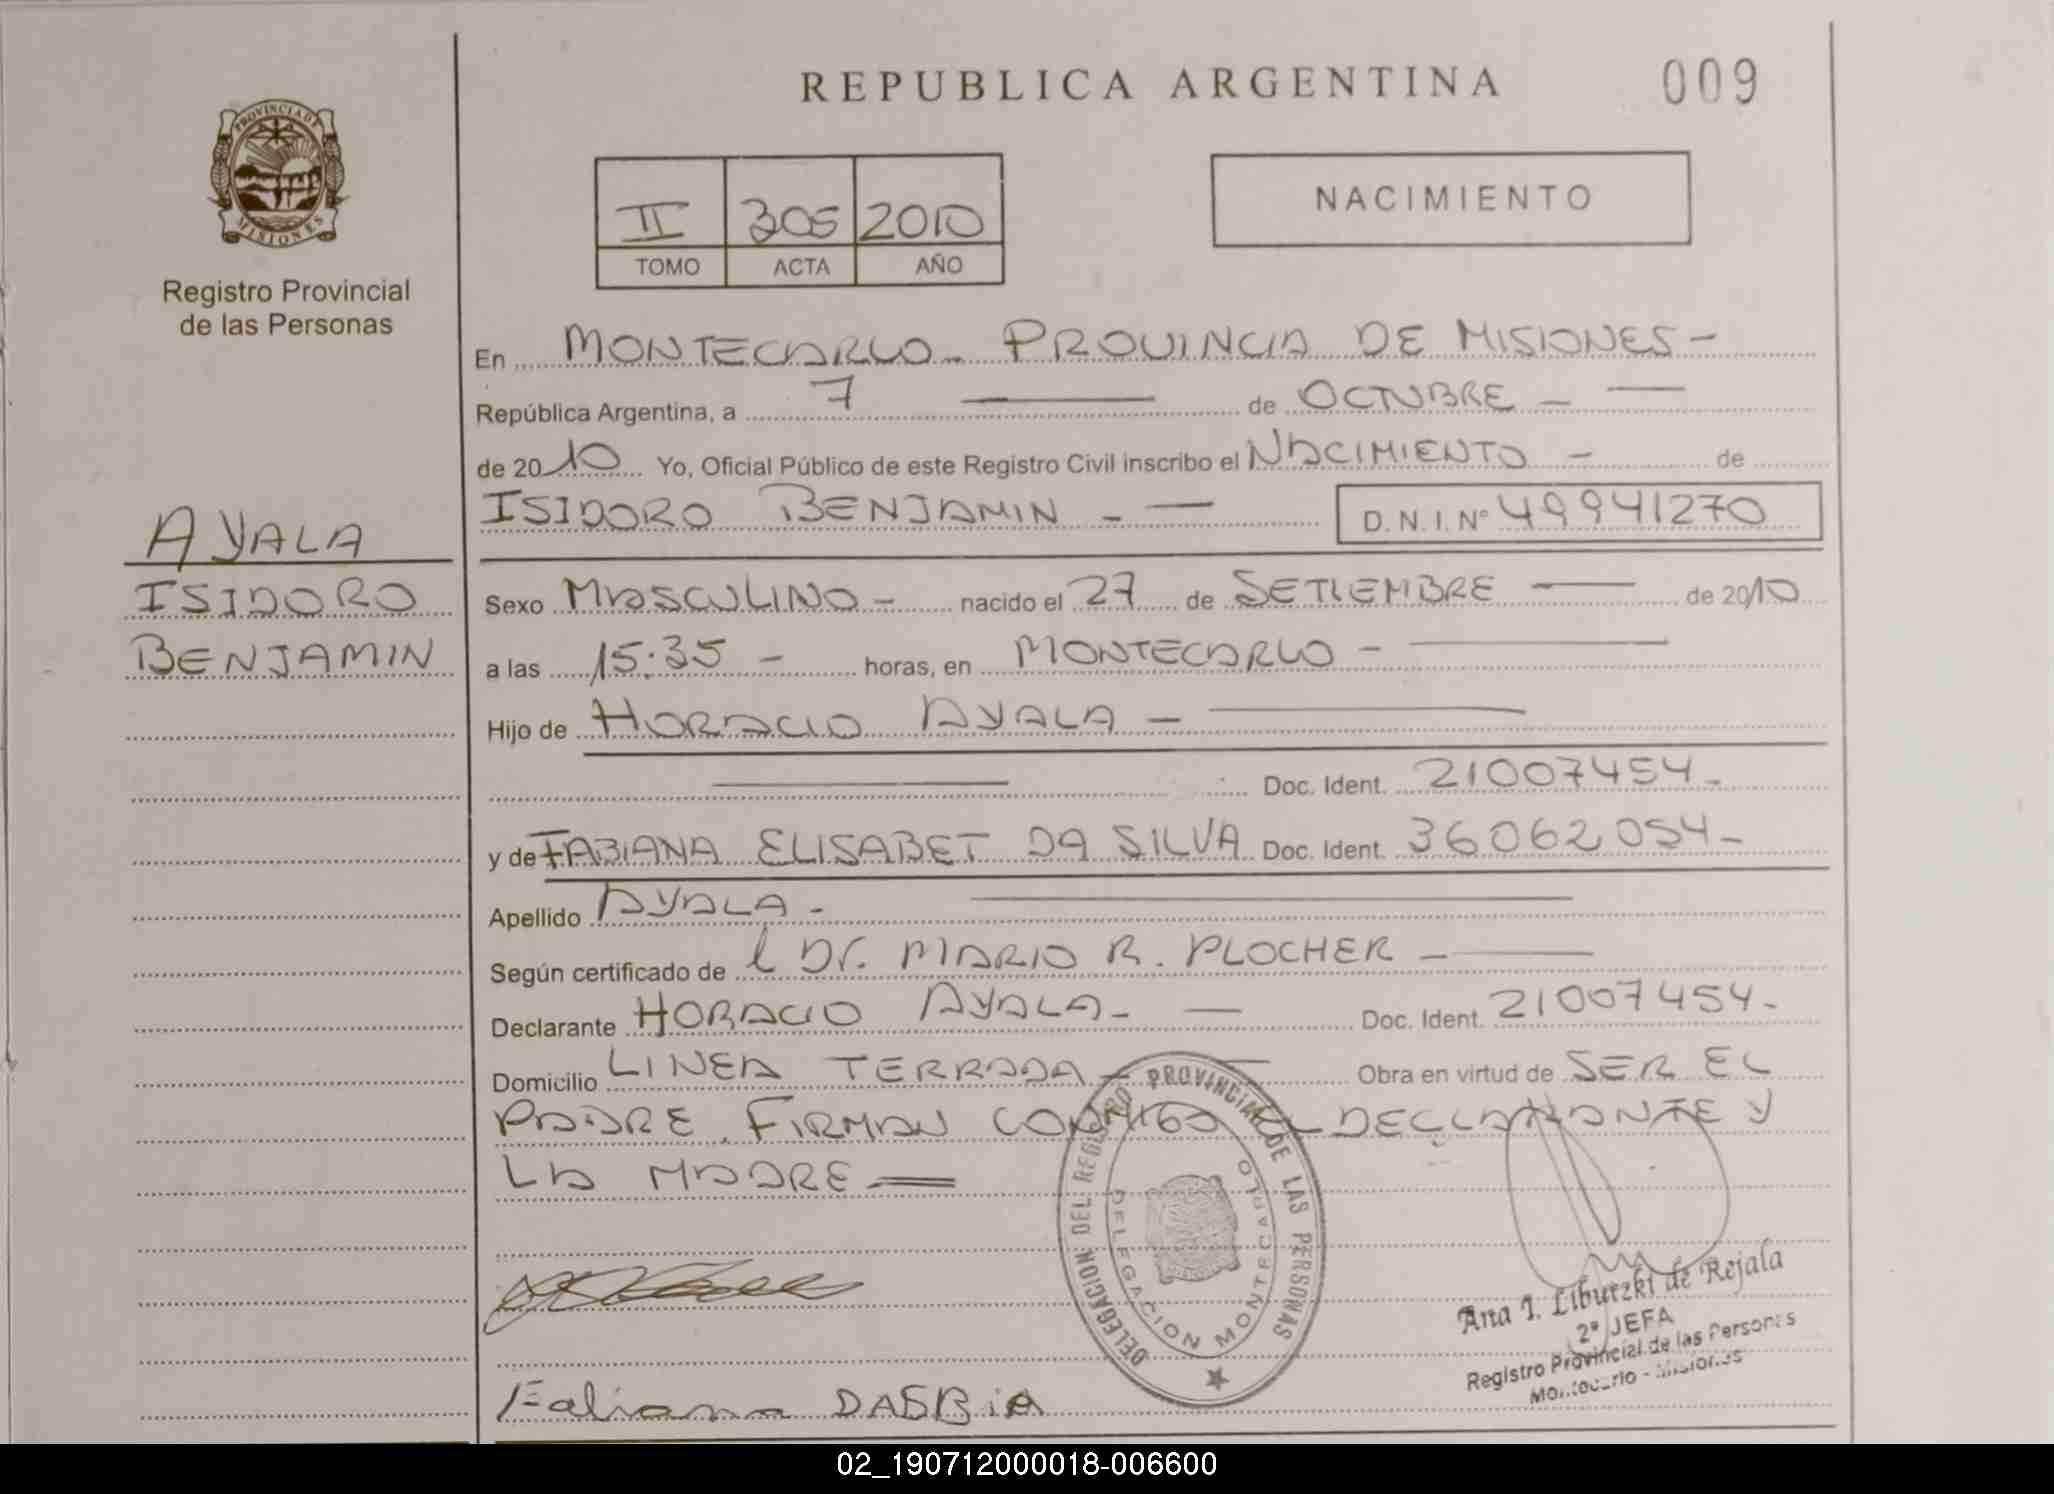 REPUBLICA ARGENTINA
009
PROVINCIA DE
MISIONES
Registro Provincial
de las Personas
II 305 2010
TOMO ACTA AÑO
NACIMIENTO
En MONTECARLO - PROVINCIA DE MISIONES -
República Argentina, a 7 de OCTUBRE -
de 2010 Yo, Oficial Público de este Registro Civil inscribo el NACIMIENTO - de
ISIDORO BENJAMIN - D.N.I. Nº 49941270
AYALA
ISIDORO
BENJAMIN
Sexo MASCULINO - nacido el 27 de SETIEMBRE de 2010
a las 15:35 - horas, en MONTECARLO -
Hijo de HORACIO AYALA -
Doc. Ident. 21007454 -
y de FABIANA ELISABET DA SILVA Doc. Ident. 36062054 -
Apellido AYALA -
Según certificado de l DR. MARIO R. PLOCHER -
Declarante HORACIO AYALA - Doc. Ident. 21007454 -
Domicilio LINEA TERRADA - Obra en virtud de SER EL
PADRE. FIRMAN CONMIGO EL DECLARANTE Y
LA MADRE
DELEGACION DEL REGISTRO PROVINCIAL DE LAS PERSONAS
DELEGACION MONTECARLO
Ana I. Liburzki de Rejala
2ª JEFA
Registro Provincial de las Personas
Montecarlo - Misiones
Fabiana
02_190712000018-006600